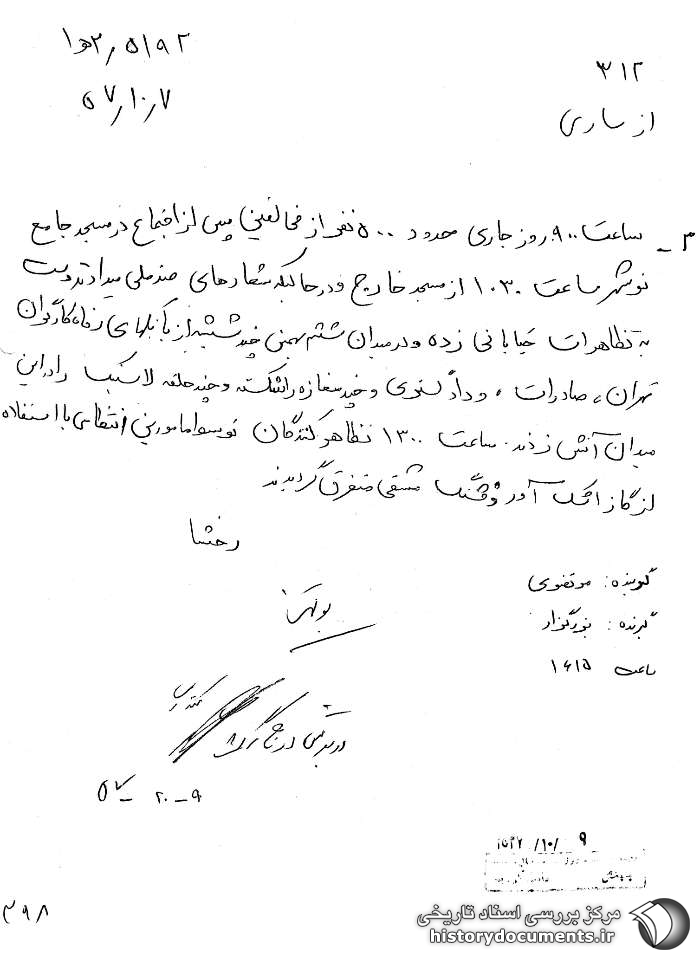 ۳۱۲
۵۱۹۲/۲ﻫ۱
از ساری
۵۷/۱۰/۷
۳ـ ساعت ۹۰۰ روز جاری حدود ۵۰۰ نفر از مخالفین پس از اجتماع در مسجد جامع
نوشهر ساعت ۱۰۳۰ از مسجد خارج و در حالیکه شعارهای ضد ملی میدادند دست
به تظاهرات خیابانی زده و در میدان ششم بهمن چند شیشه از بانکهای رفاه کارگران
تهران، صادرات، و دادگستری و چند مغازه را شکسته و چند حلقه لاستیک را در این
میدان آتش زدند. ساعت ۱۳۰۰ تظاهر کنندگان توسط مامورین انتظامی با استفاده
از گاز اشک آور و فشنگ مشقی متفرق گردیدند
رخشا
گوینده: مرتضوی
گیرنده: بزرگزاد
ساعت ۱۶۱۵
۹-۲۰-۵۷
۹ /۱۰/
۳۹۸
مرکز بررسی اسناد تاریخی
historydocuments.ir